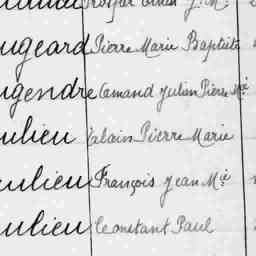 ugeard Pierre Marie Baptiste
ugendre Armand Julien Pierre Mie
ulieu Alain Pierre Marie
ulieu François Jean Mie
ulieu Constant Paul